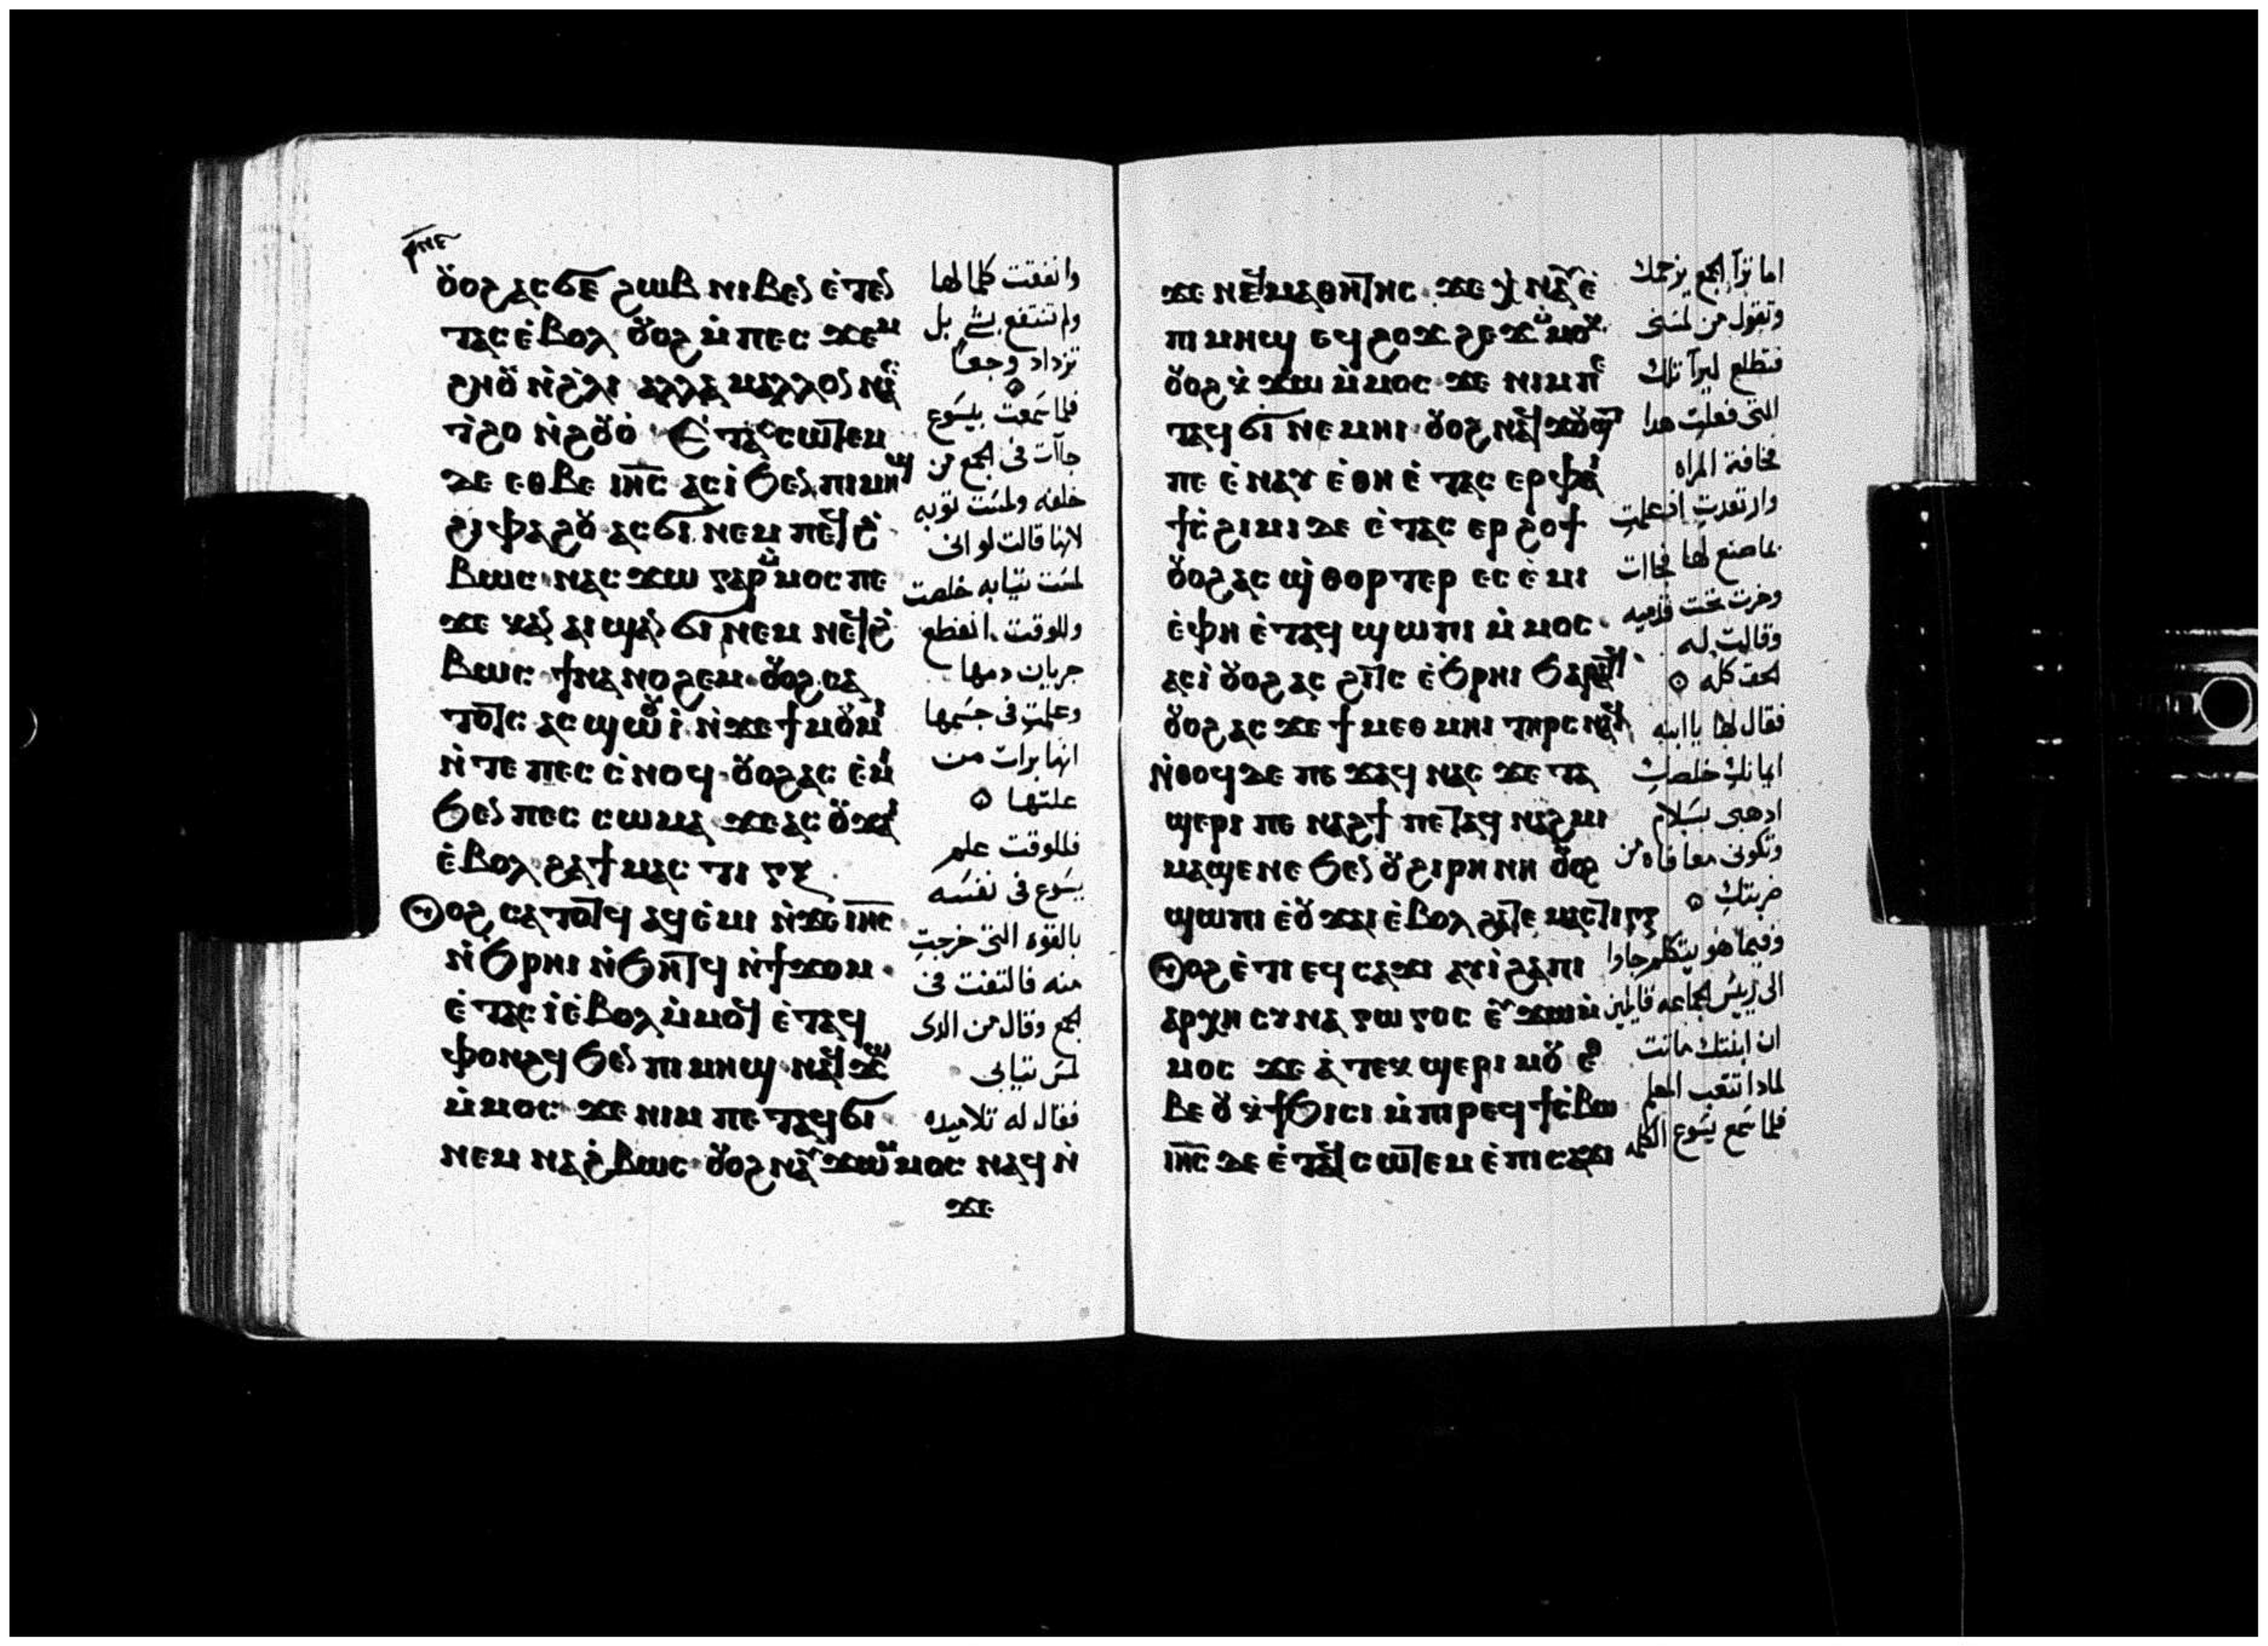 ⲣⲛⲉ
ⲟⲩⲟϩ ⲁⲥϭⲉ ϩⲱⲃ ⲛⲓⲃⲉⲛ ⲉ̀ⲧⲉⲛ
ⲧⲁⲥ ⲉ̀ⲃⲟⲗ ⲟⲩⲟϩ ⲙ̀ⲡⲉⲥ ϫⲉⲙ
ϩⲏⲟⲩ ⲛ̀ϩ̀ⲗⲓ ⲁⲗⲗⲁ ⲙⲁⲗⲗⲟⲛ
ⲧ̀ϩⲟ ⲛ̀ϩⲟⲩⲟ̀ ⲉ̀ⲧⲁⲥⲥⲱⲧⲉⲙ
ⲇⲉ ⲉⲑⲃⲉ ⲓⲏ̅ⲥ̅ ⲁⲥⲓ̀ ϧⲉⲛ ⲡⲓⲙⲏϣ
ϩⲓⲫⲁϩⲟⲩ ⲁⲥϭⲓ ⲛⲉⲙ ⲡⲉϥϩ̀
ⲃⲱⲥ ⲛⲁⲥ ϫⲱ ⲅⲁⲣ ⲙ̀ⲙⲟⲥ ⲡⲉ
ϫⲉ ⲕⲁⲛ ⲁⲓϣⲁⲛ ϭⲓ ⲛⲉⲙ ⲛⲉϥϩ̀
ⲃⲱⲥ ϯⲛⲁⲛⲟϩⲉⲙ ⲟⲩⲟϩ ⲥⲁ
ⲧⲟⲧⲥ ⲁⲥϣⲱⲟⲩⲓ̀ ⲛ̀ϫⲉ ϯⲙⲟⲩⲙⲓ
ⲛ̀ⲧⲉ ⲡⲉⲥ ⲥ̀ⲛⲟϥ ⲟⲩⲟϩ ⲁⲥ ⲉ̀ⲙⲓ
ϧⲉⲛ ⲡⲉⲥ ⲥⲱⲙⲁ ϫⲉ ⲁⲥ ⲟⲩϫⲁⲓ
ⲉ̀ⲃⲟⲗ ϩⲁ ϯⲙⲁⲥⲧⲓⲅⲝ
ⲟⲩⲟϩ ⲥⲁⲧⲟⲧϥ ⲁϥⲉ̀ⲙⲓ ⲛ̀ϫⲉ ⲓⲏ̅ⲥ̅
ⲛ̀ϧⲣⲏⲓ ⲛ̀ϧⲏⲧϥ ⲛ̀ϯϫⲟⲙ
ⲉ̀ⲧⲁⲥⲓ̀ ⲉ̀ⲃⲟⲗ ⲙ̀ⲙⲟϥ ⲉ̀ⲧⲁϥ
ⲫⲟⲛϩϥ ϧⲉⲛ ⲡⲓⲙⲏϣ ⲛⲁϥϫⲱ
ⲙ̀ⲙⲟⲥ ϫⲉ ⲛⲓⲙ ⲡⲉⲧⲁϥϭⲓ
ⲛⲉⲙ ⲛⲁϩ̀ⲃⲱⲥ ⲟⲩⲟϩ ⲛⲁⲩϫⲱ ⲙ̀ⲙⲟⲥ ⲛⲁϥ ⲛ̀
ϫⲉ
وانفقت كلما لها
ولم تنتفع بشي بل
تزداد وجعا
فلما سمعت بيسوع
جآت فى الجمع من
خلفه ولمست ثوبه
لانها قالت لو انى
لمست ثيابه خلصت
وللوقت انقطع
جريان دمها
وعلمت فى جسمها
انها برات من
علتها
فللوقت علم
يسوع فى نفسه
بالقوه التى خرجت
منه فالتفت فى
الجمع وقال من الدى
لمس ثيابى
فقال له تلاميده
ϫⲉ ⲛⲉϥⲙⲁⲑⲏⲧⲏⲥ ϫⲉ ⲭ̀ⲛⲁⲩ ⲉ̀
ⲡⲓⲙⲏϣ ⲉϥϩⲟϫϩⲉϫ ⲙ̀ⲙⲟⲕ
ⲟⲩⲟϩ ⲕ̀ϫⲱ ⲙ̀ⲙⲟⲥ ϫⲉ ⲛⲓⲙ ⲡⲉ
ⲧⲁϥϭⲓ ⲛⲉⲙⲏⲓ ⲟⲩⲟϩ ⲛⲁϥϫⲟⲩϣⲧ
ⲡⲉ ⲉ̀ⲛⲁⲩ ⲉ̀ⲑⲏ ⲉ̀ⲧⲁⲥ ⲉⲣ ⲫⲁⲓ
ϯⲥ̀ϩⲓⲙⲓ ⲇⲉ ⲉ̀ⲧⲁⲥ ⲉⲣ ϩⲟϯ
ⲟⲩⲟϩ ⲁⲥ ϣ̀ⲑⲟⲣⲧⲉⲣ ⲉⲥⲉ̀ⲙⲓ
ⲉ̀ⲫⲏ ⲉ̀ⲧⲁϥ ϣⲱⲡⲓ ⲙ̀ⲙⲟⲥ
ⲁⲥⲓ̀ ⲟⲩⲟϩ ⲁⲥ ϩⲓⲧⲥ ⲉ̀ϧⲣⲏⲓ ϧⲁⲣⲁⲧϥ
ⲟⲩⲟϩ ⲁⲥ ϫⲉ ϯⲙⲉⲑⲙⲏⲓ ⲧⲏⲣⲥ ⲛⲁϥ
ⲛ̀ⲑⲟϥ ⲇⲉ ⲡⲉϫⲁϥ ⲛⲁⲥ ϫⲉ ⲧⲁ
ϣⲉⲣⲓ ⲡⲉ ⲛⲁϩϯ ⲡⲉⲧⲁϥ ⲛⲁϩⲙⲓ
ⲙⲁϣⲉⲛⲉ ϧⲉⲛ ⲟⲩϩⲓⲣⲏⲛⲏ ⲟⲩⲟϩ
ϣⲱⲡⲓ ⲉ̀ⲟⲩϫⲁⲓ ⲉ̀ⲃⲟⲗ ϩⲁ ⲧⲉ ⲙⲁⲥⲧⲓⲅⲝ
ⲟⲩⲟϩ ⲉ̀ⲧⲓ ⲉϥⲥⲁϫⲓ ⲁⲩⲓ̀ ϩⲁ ⲡⲓ
ⲁⲣⲭⲏⲥⲩⲛⲁⲅⲱⲅⲟⲥ ⲉⲩϫⲱ ⲙ̀
ⲙⲟⲥ ϫⲉ ⲁ̀ ⲧⲉⲕϣⲉⲣⲓ ⲙⲟⲩ ⲉⲑ
ⲃⲉ ⲟⲩ ⲕ̀ϯϧⲓⲥⲓ ⲙ̀ⲡⲓⲣⲉϥϯⲥ̀ⲃⲱ
ⲓⲏ̅ⲥ̅ ⲇⲉ ⲉ̀ⲧⲁϥⲥⲱⲧⲉⲙ ⲉ̀ⲡⲓⲥⲁϫⲓ
اما ترآ الجمع يزحمك
وتقول من لمسنى
فتطلع ليرآ تلك
التى فعلت هدا
فخافة المراه
وارتعدت اذ علمت
بما صنع لها فجاات
وخرت تحت قدميه
وقالت له
الحق كله
فقال لها يا ابنه
ايمانك خلصك
ادهبى بسلام
وتكونى معافاه من
ضربتك
وفيما هو يتكلم جاوا
الى رييس الجماعه قايلين
ان ابنتك ماتت
لمادا تتعب المعلم
فلما سمع يسوع الكلمه